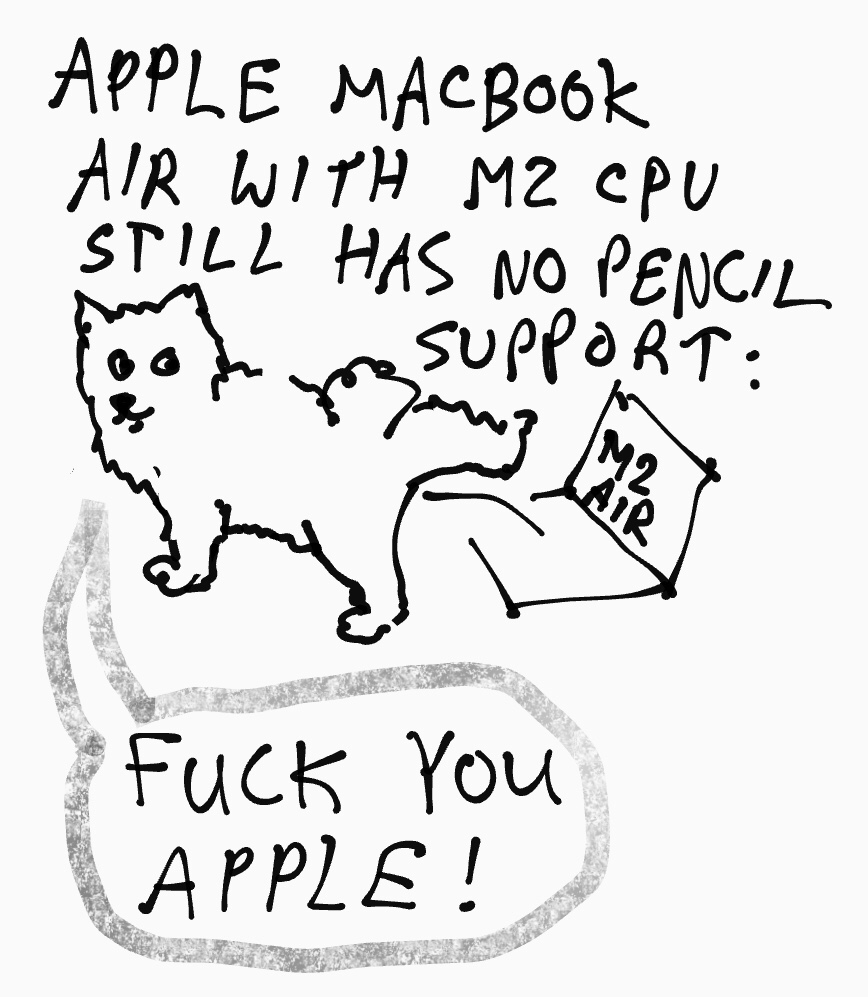 APPLE MACBOOK
AIR WITH M2 CPU
STILL HAS NO PENCIL
SUPPORT:
M2
AIR
FUCK YOU
APPLE!